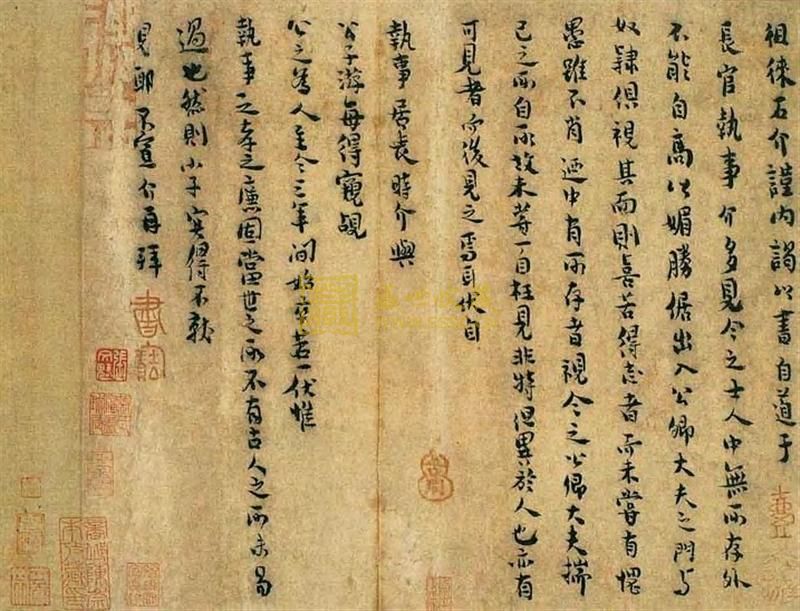 徂徠石介謹內謁以書自道于
長官執事介多見今之士人中無所存外
不能自高以媚勝倨出入公卿大夫之門与
奴隸俱視其面則喜若得志者而未嘗有愧
愚雖不肖迺中有所存者視今之公卿大夫揣
己之所自所故未嘗一自枉見非特但異於人也亦有
可見者而後見之焉耳伏自
執事居長時介與
公子游每得窺覘
公之為人至今三年間始卒若一伏惟
執事之孝之廉固當世之所不有古人之所未易
過也然則小子安得不就
見耶不宣介再拜